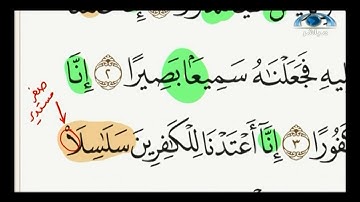 مباشر
فِيهِ فَجَعَلْنَٰهُ سَمِيعًۢا بَصِيرًا ۝٢ إِنَّا
صفر
مستدير
كَفُورًا ۝٣ إِنَّآ أَعْتَدْنَا لِلْكَٰفِرِينَ سَلَٰسِلَا۟